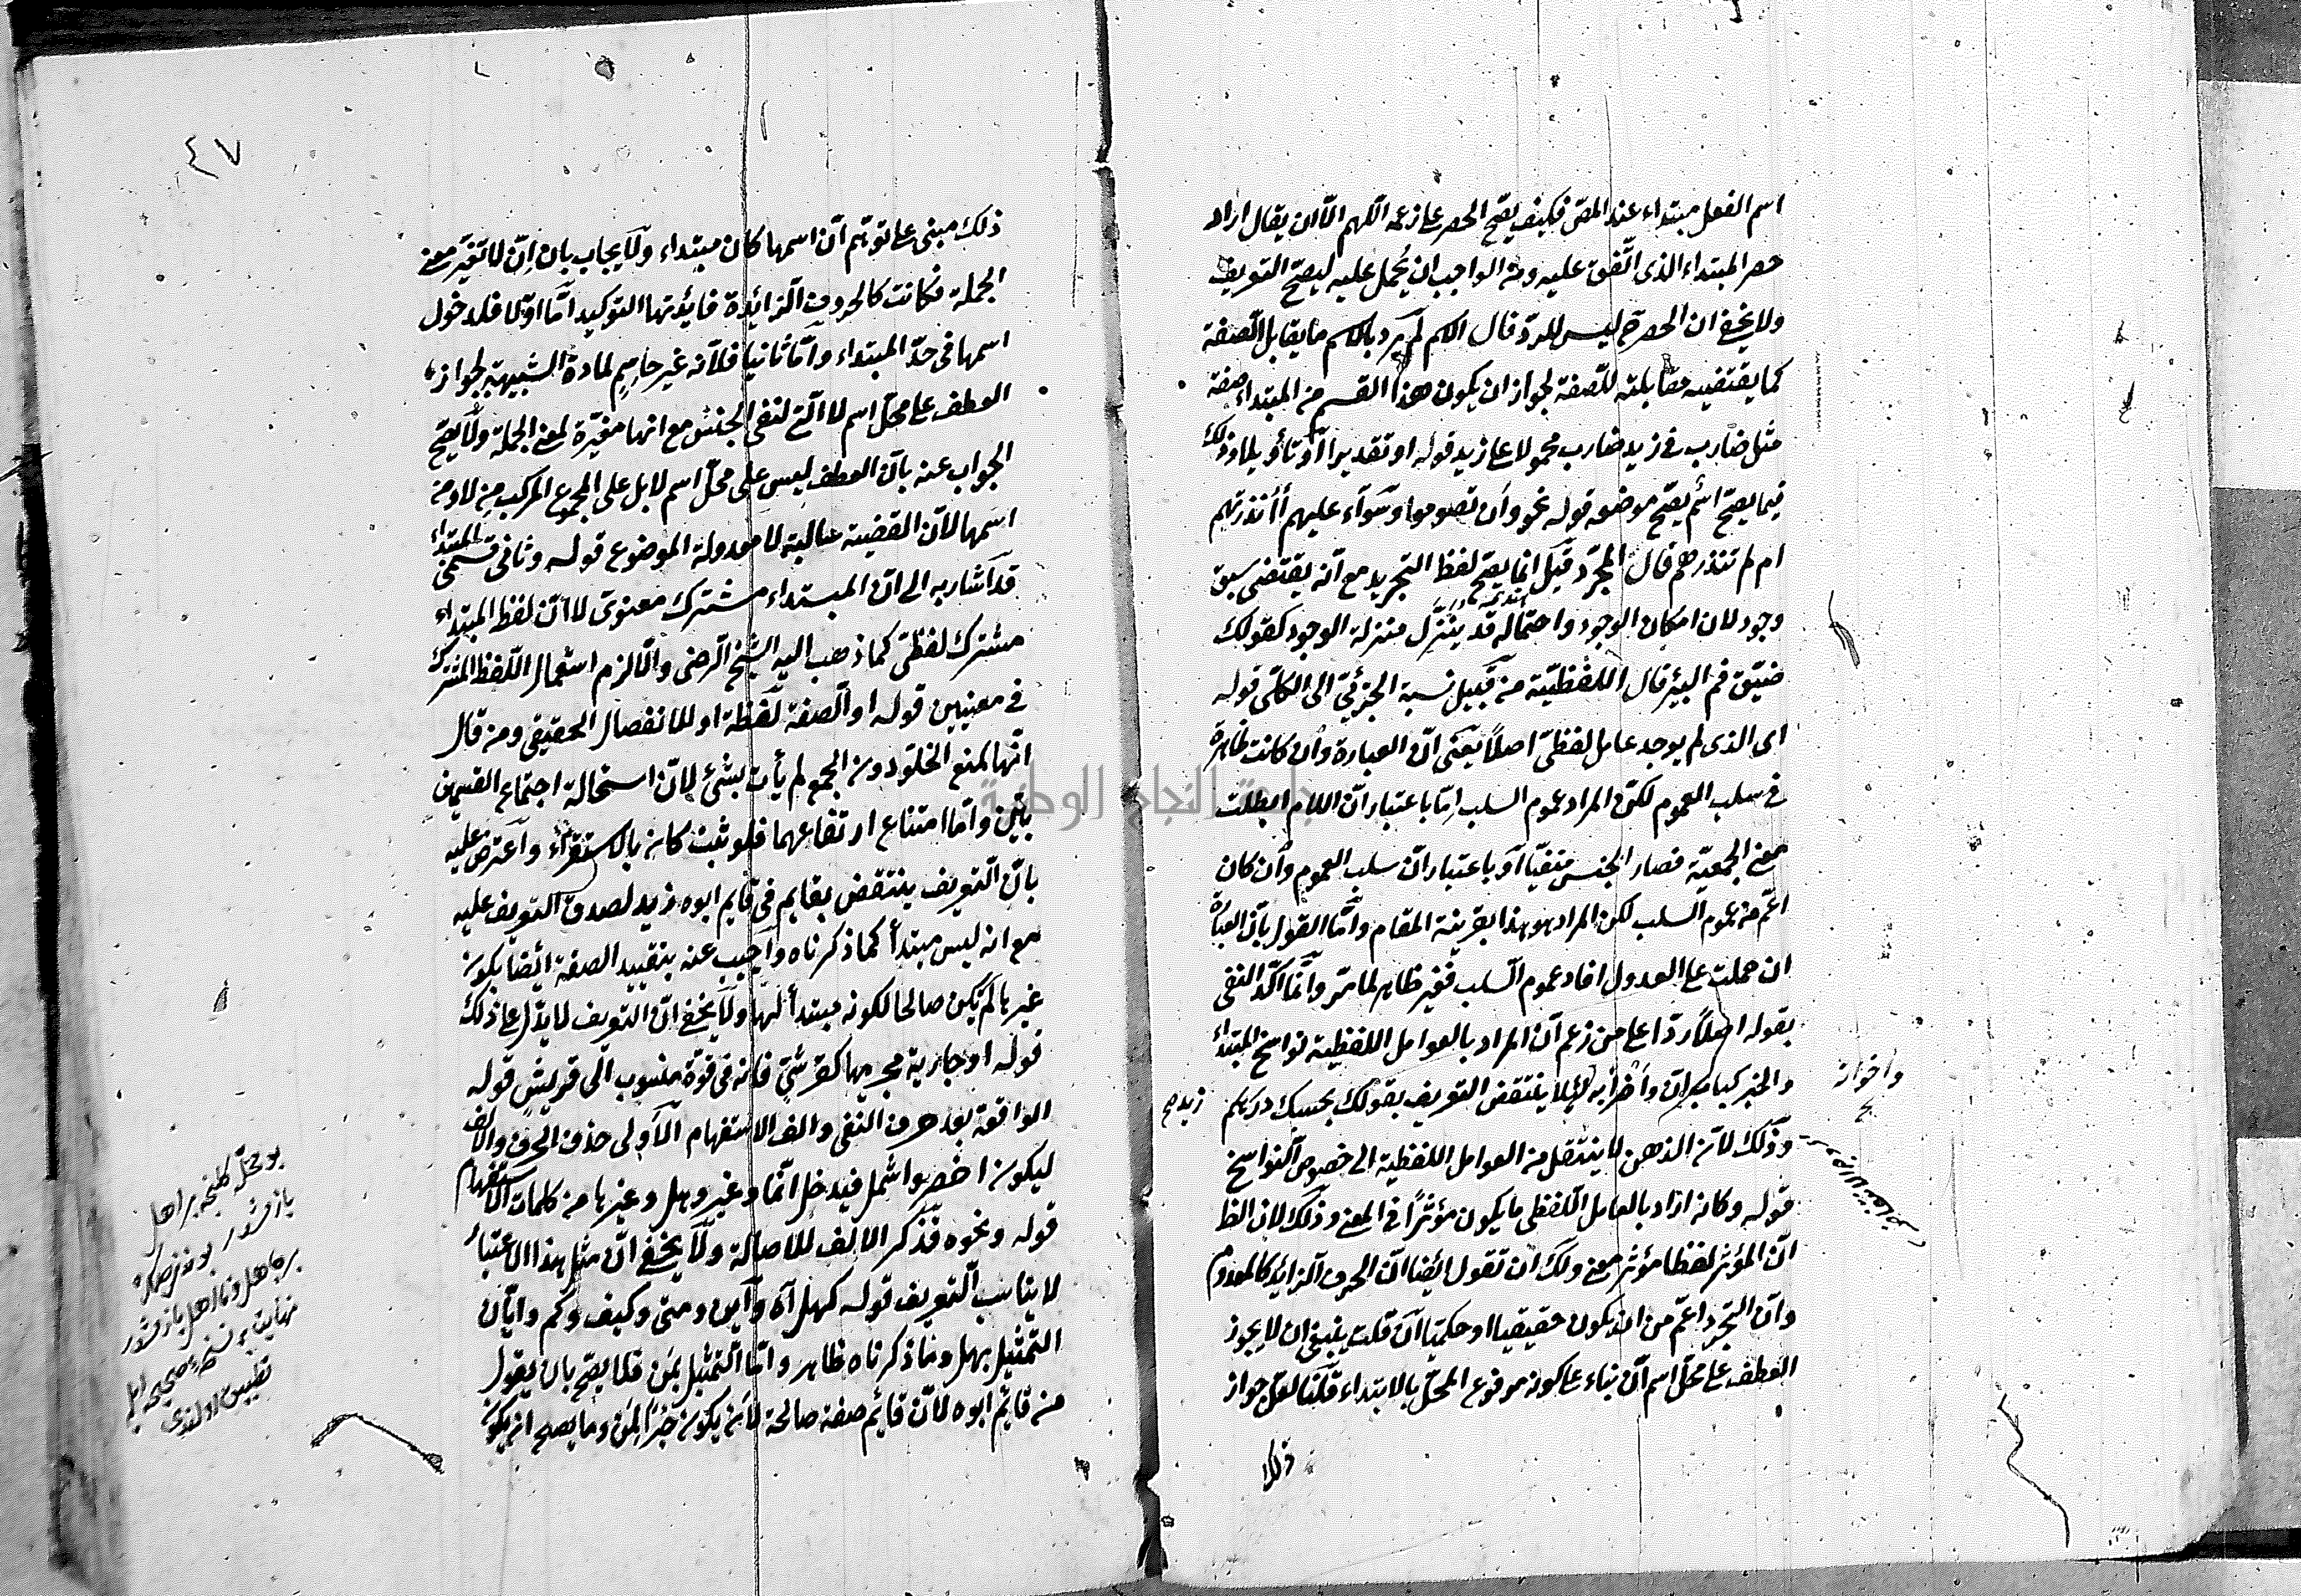 اسم الفعل مبتداء عند المص فكيف يصح الحصر على زعمه اللهم الا ان يقال اراد
حصر المبتداء الذى اتفق عليه ومن الواجب ان يحمل عليه ليصح التعريف
ولا يخفى ان الحصر ليس للرد قال الاسم لم يرد بالاسم ما يقابل الصفة
كما يقتضيه مقابلته للصفة لجواز ان يكون هذا القسم من المبتداء صفة
مثل ضارب فى زيد ضارب محمولا على زيد قوله او تقديرا او تأويلا وذلك
فيما يصح اسم يصح موضعه قوله نحو وان تصوموا وسواء عليهم أأنذرتهم
ام لم تنذرهم قال المجرد قيل انما يصح لفظ التجريد مع انه يقتضى سبق
وجود لان امكان الوجود واحتماله قد ينزل منزلة الوجود كقولك
ضيّق فم البئر قال اللفظيّة من قبيل نسبة الجزئىّ الى الكلّى قوله
اى الذى لم يوجد عامل لفظىّ اصلاً يعنى انّ العبارة وان كانت ظاهرة
فى سلب العموم لكنّ المراد عموم السلب امّا باعتبار انّ اللام ابطلت
معنى الجمعيّة فصار الجنس منفيّا او باعتبار انّ سلب العموم وان كان
اعمّ من عموم السلب لكن المراد هو هذا بقرينة المقام وامّا القول بانّ العبارة
ان حملت على العدول افاد عموم السلب فغير ظاهر لما مرّ وانّما اكّد النفى
بقوله اصلاً ردّا على من زعم انّ المراد بالعوامل اللفظية نواسخ المبتداء
والخبر كباب انّ واضرابه لئلا ينتقض التعريف بقولك بحسبك درهم
واخواته
زيد صح
وذلك لانّ الذهن لا ينتقل من العوامل اللفظية الى خصوص النواسخ
قوله وكانه اراد بالعامل اللفظى ما يكون مؤثراً فى المعنى وذلك لان الظ
انّ المؤثر لفظا مؤثر معنى ولك ان تقول ايضا انّ الحرف الزايد كالمعدوم
وانّ التجرد اعمّ من ان يكون حقيقيا او حكميّا ان قلت ينبغى ان لا يجوز
العطف على محلّ اسم انّ بناء على كونه مرفوع المحلّ بالابتداء قلنا لعلّ جواز
ذلك
٤٧
ذلك مبنى على توهّم انّ اسمها كان مبتداء ولا يجاب بان انّ لا تغيّر معنى
الجملة فكانت كالحروف الزائدة فايدتها التوكيد امّا اوّلا فلدخول
اسمها فى حدّ المبتداء وامّا ثانيا فلانّه غير حاسم لمادة الشبهة لجواز
العطف على محلّ اسم لا التى لنفى الجنس مع انها مغيّرة لمعنى الجملة ولا يصحّ
الجواب عنه بانّ العطف ليس على محلّ اسم لا بل على المجموع المركب من لا ومن
اسمها لانّ القضية سالبة لا معدولة الموضوع قوله وثانى قسمى المبتداء
قد اشار به الى انّ المبتداء مشترك معنوىّ لا انّ لفظ المبتداء
مشترك لفظىّ كما ذهب اليه الشيخ الرضى والا لزم استعمال اللفظ المشترك
فى معنيين قوله او الصفة لفظة او للانفصال الحقيقى ومن قال
انّها لمنع الخلوّ دون الجمع لم يأت بشئ لانّ استحالة اجتماع القسيمين
بيّن وامّا امتناع ارتفاعهما فلو ثبت كان بالاستقراء واعترض عليه
بانّ التعريف ينتقض بقايم فى قايم ابوه زيد لصدق التعريف عليه
مع انه ليس مبتدأ كما ذكرناه واجيب عنه بتقييد الصفة ايضا بكون
غيرها لم يكن صالحا لكونه مبتدأ لها ولا يخفى انّ التعريف لا يدلّ على ذلك
قوله او جارية مجريها كقرشىّ فانه فى قوة منسوب الى قريش قوله
الواقعة بعد حرف النفى والف الاستفهام الاولى حذف الحرف والالف
ليكون اخصر واشمل فيدخل انّما وغير وهل وغيرها من كلمات الاستفهام
قوله ونحوه فذكر الالف للاصالة ولا يخفى انّ مثل هذا الاعتبار
لا يناسب التعريف قوله كهل اه واين ومتى وكيف وكم وايّان
التمثيل بهل وما ذكرناه ظاهر وامّا التمثيل بمن فلا يصحّ بان يقول
من قائم ابوه لانّ قائم صفة صالحة لان يكون خبراً لمن وما يصح ان يكون